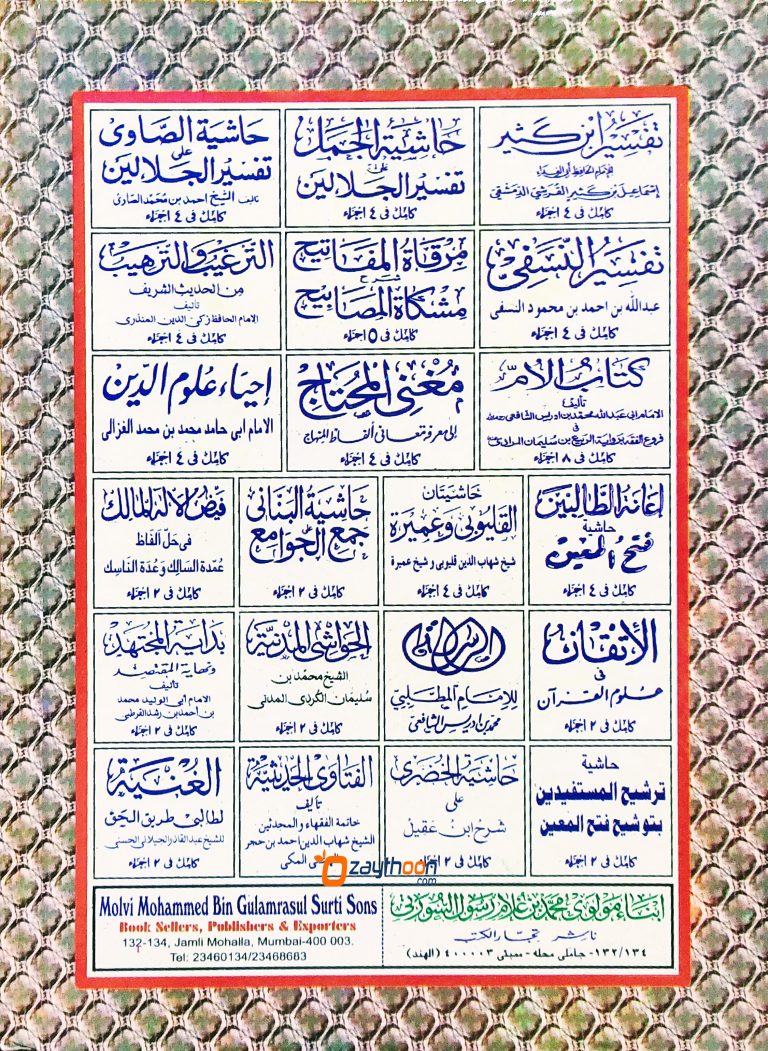 تفسير ابن كثير
للإمام الحافظ أبي الفداء
إسماعيل بن كثير القرشي الدمشقي
كامل في ٤ اجزاء
حاشية الجمل
على
تفسير الجلالين
كامل في ٤ اجزاء
حاشية الصاوى
على
تفسير الجلالين
تاليف الشيخ احمد بن محمد الصاوى
كامل في ٤ اجزاء
تفسير النسفي
عبدالله بن احمد بن محمود النسفى
كامل في ٤ اجزاء
مرقاة المفاتيح
شرح
مشكاة المصابيح
كامل في ٥ اجزاء
الترغيب والترهيب
من الحديث الشريف
تأليف
الامام الحافظ زكى الدين المنذرى
كامل في ٤ اجزاء
كتاب الأم
تأليف
الامام ابي عبدالله محمد بن ادريس الشافعي
في
فروع الفقه برواية الربيع بن سليمان المرادي
كامل في ٨ اجزاء
مغني المحتاج
إلى معرفة معاني ألفاظ المنهاج
كامل في ٤ اجزاء
إحياء علوم الدين
الامام ابى حامد محمد بن محمد الغزالى
كامل في ٤ اجزاء
إعانة الطالبين
حاشية
فتح المعين
كامل في ٤ اجزاء
حاشيتان
القليوبى وعميرة
شيخ شهاب الدين قليوبى و شيخ عميرة
كامل في ٤ اجزاء
حاشية البنانى
على
جمع الجوامع
كامل في ٢ اجزاء
فيض الاله المالك
فى حل الفاظ
عمدة السالك وعدة الناسك
كامل في ٢ اجزاء
الأتقان
في
علوم القرآن
كامل في ٢ اجزاء
الرسالة
للإمام المطلبي
محمد بن ادريس الشافعي
الحواشى المدنية
الشيخ محمد بن
سليمان الكردى المدنى
كامل في ٢ اجزاء
بداية المجتهد
ونهاية المقتصد
تأليف
الامام أبى الوليد محمد
بن أحمد بن رشد القرطبى
كامل في ٢ اجزاء
حاشية
ترشيح المستفيدين
بتوشيح فتح المعين
كامل في ٢ اجزاء
حاشية الخضرى
على
شرح ابن عقيل
كامل في ٢ اجزاء
الفتاوى الحديثية
تأليف
خاتمة الفقهاء و المحدثين
الشيخ شهاب الدين احمد بن حجر
المكى
الغنية
لطالبي طريق الحق
للشيخ عبد القادر الجيلاني الحسني
كامل في ٢ اجزاء
zaythoon
.com
ابناء مولوى محمد بن غلام رسول السورتى
ناشر تجار الكتب
١٣٢/١٣٤- جاملى محله - ممبئى ٤٠٠٠٠٣ (الهند)
Molvi Mohammed Bin Gulamrasul Surti Sons
Book Sellers, Publishers & Exporters
132-134, Jamli Mohalla, Mumbai-400 003.
Tel: 23460134/23468683